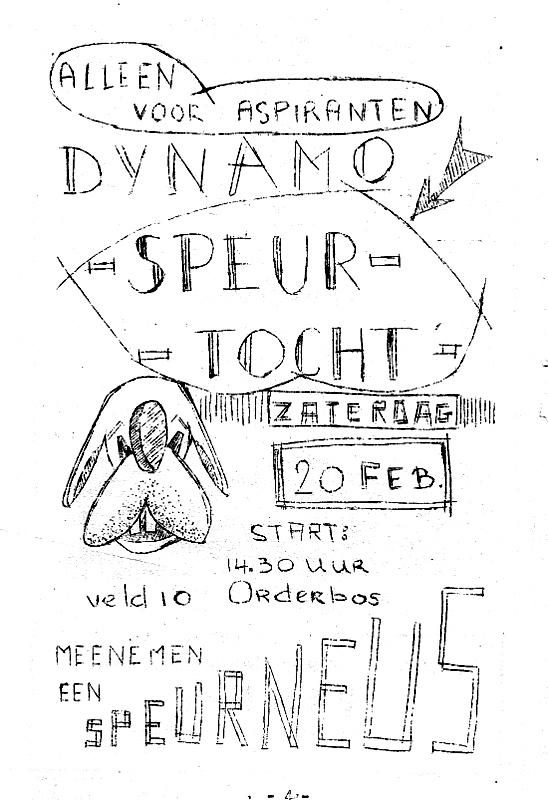 ALLEEN
VOOR ASPIRANTEN
DYNAMO
-SPEUR-
-TOCHT-
ZATERDAG
20 FEB.
START:
14.30 UUR
veld 10 Orderbos
MEENEMEN
EEN
SPEURNEUS
-4-